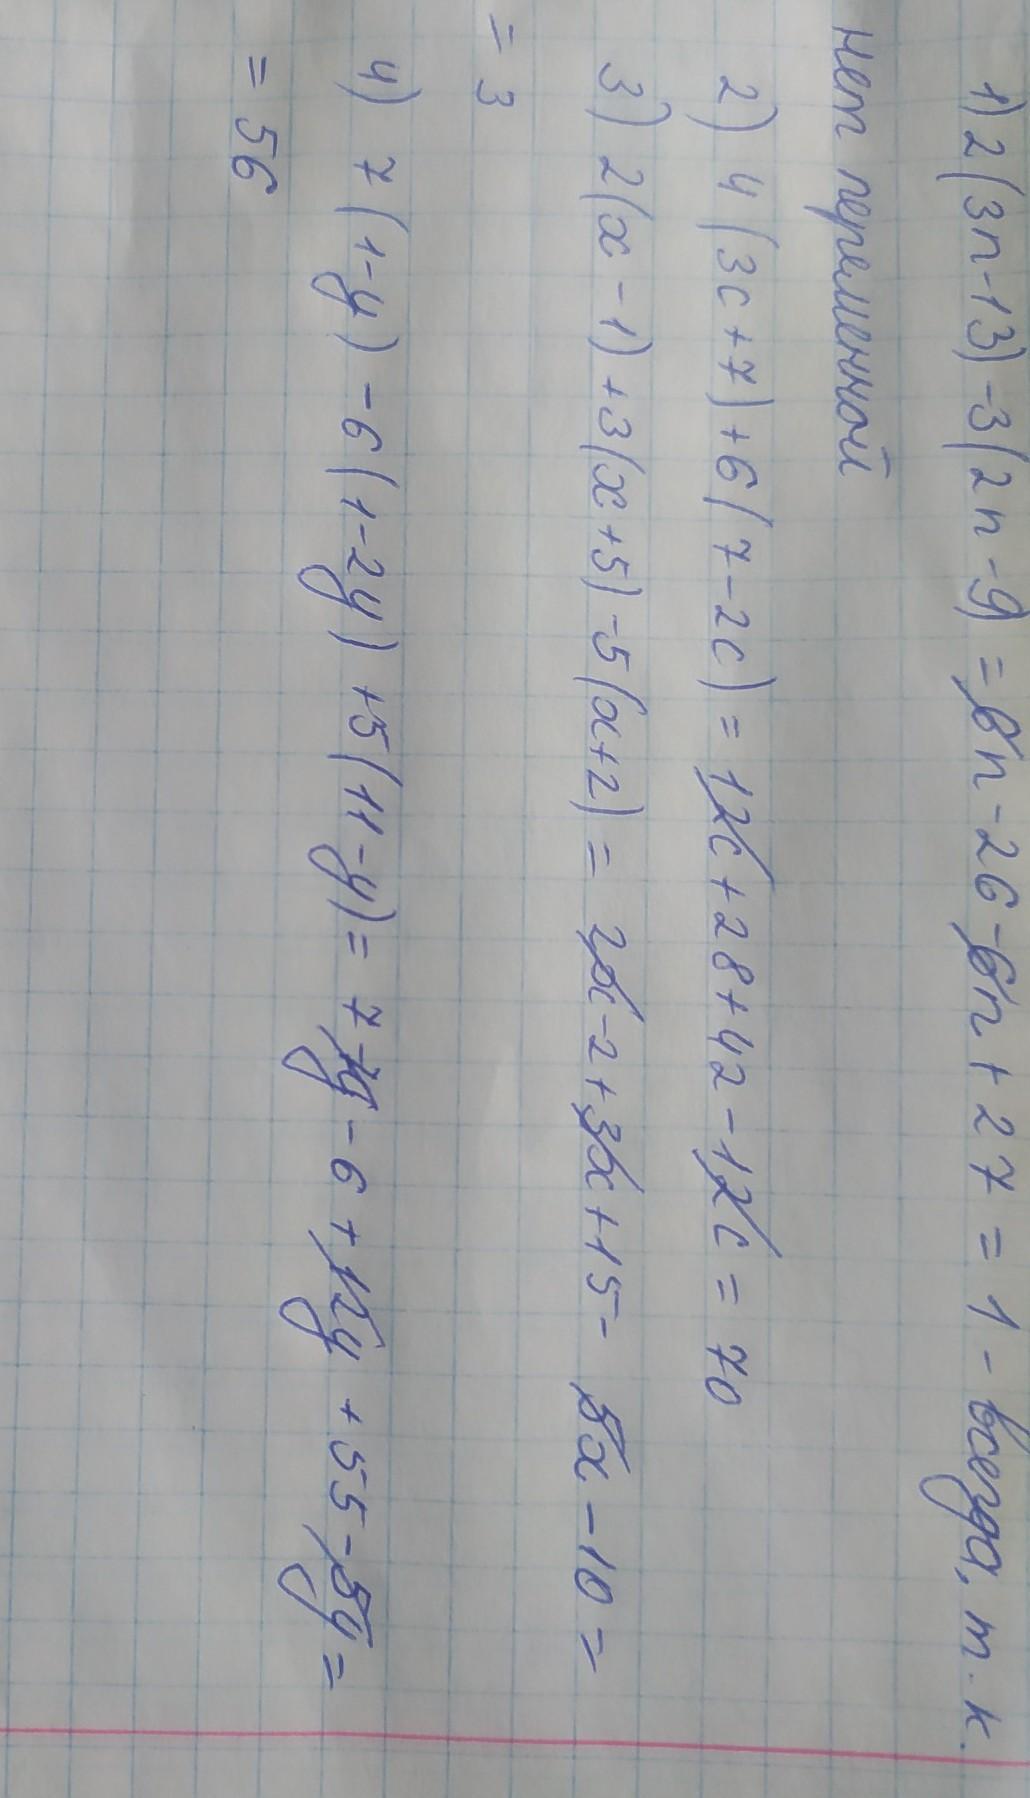 1) 2(3n-13)-3(2n-9)=6n-26-6n+27=1-всегда, т.к.
нет переменной
2) 4(3c+7)+6(7-2c)=12c+28+42-12c=70
3) 2(x-1)+3(x+5)-5(x+2)=2x-2+3x+15-5x-10=
=3
4) 7(1-y)-6(1-2y)+5(11-y)=7-7y-6+12y+55-5y=
=56